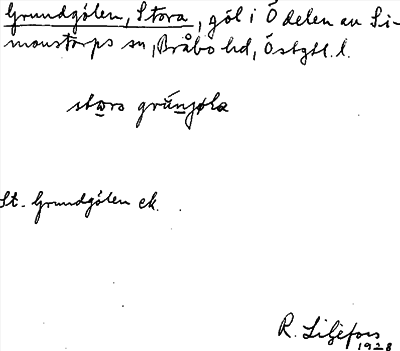 Grundgölen, Stora, göl i Ö delen av Si-
monstorps sn, Bråbo hd, Östgtl. l.
stora grúnjøla
St. Grundgölen ek.
R. Liljefors
1928